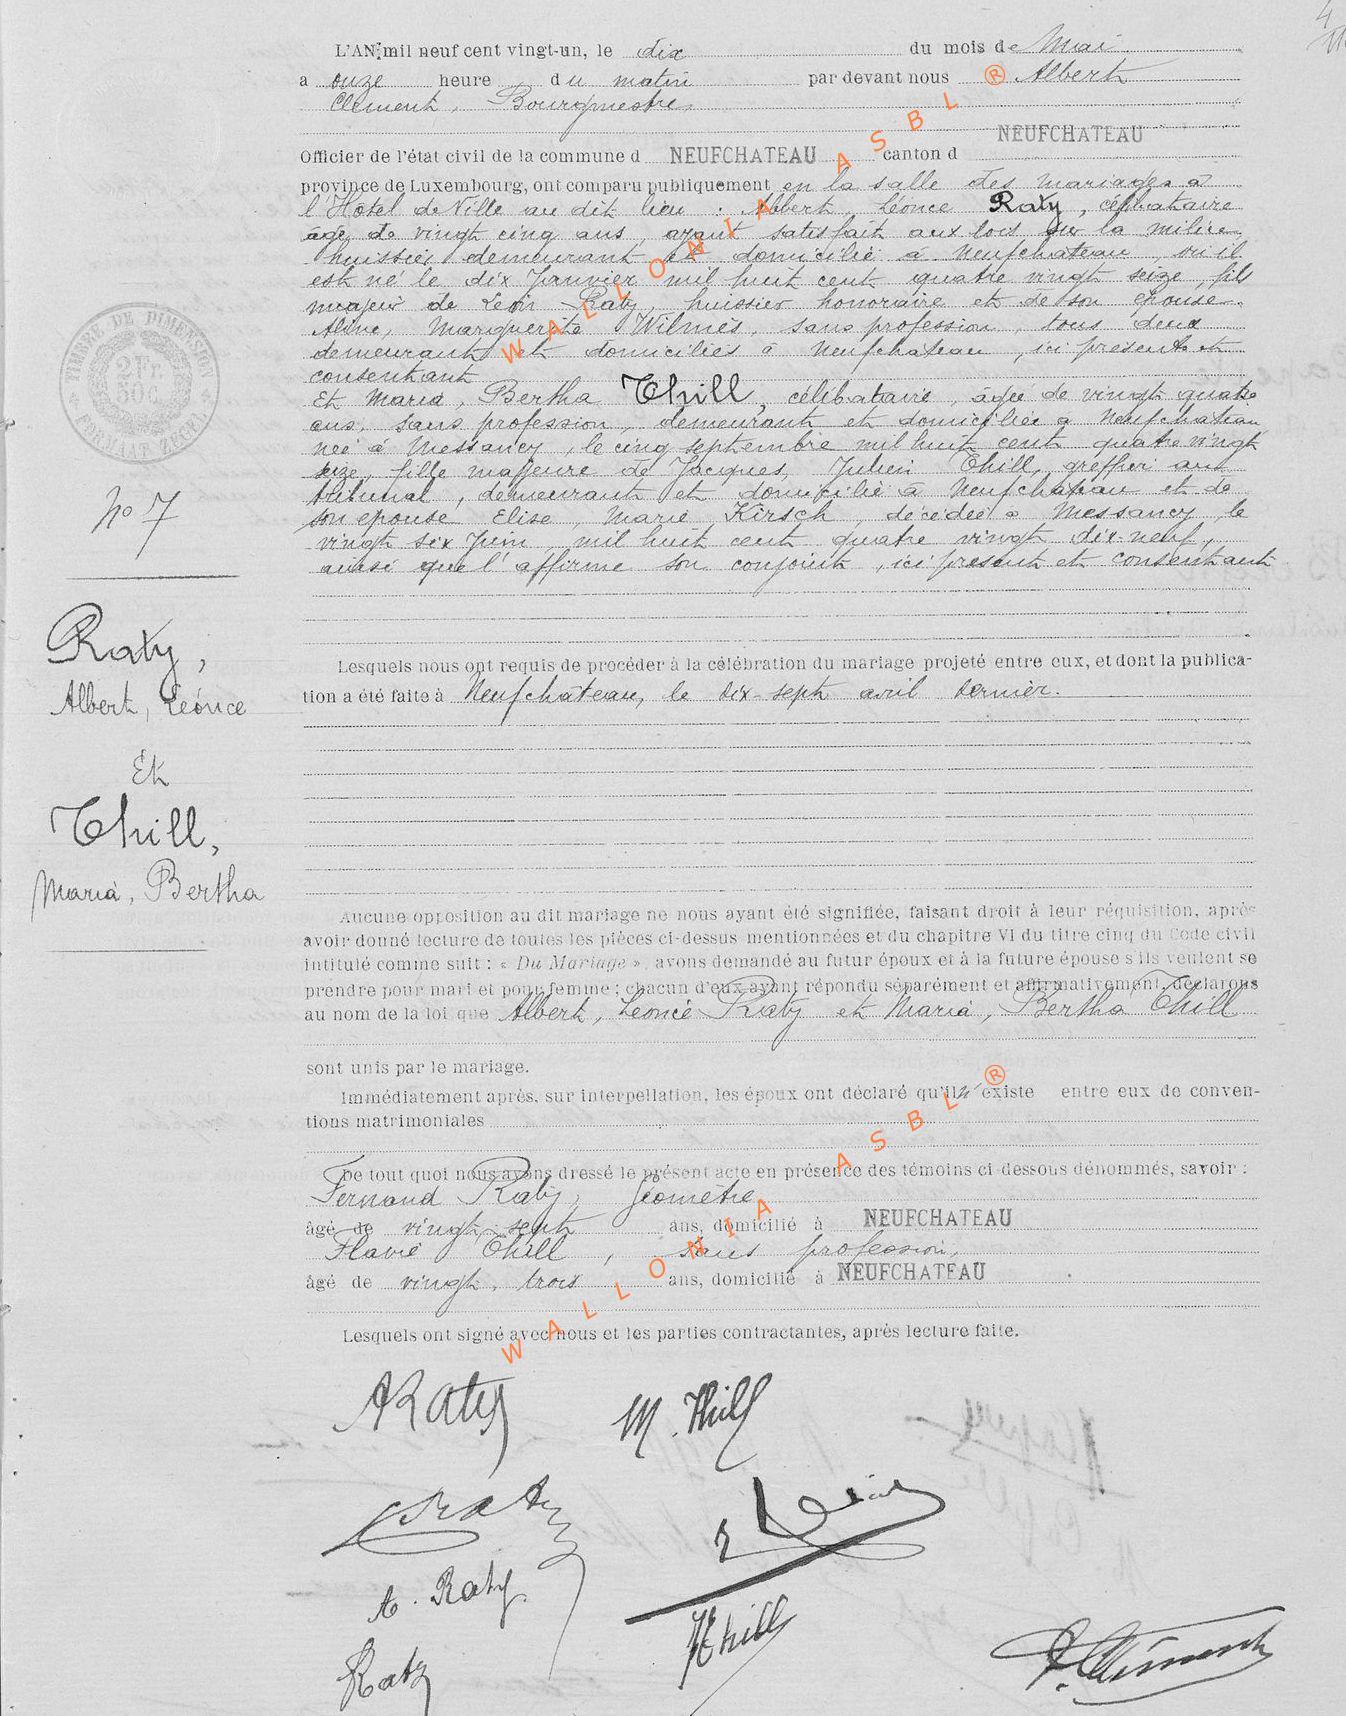 L'AN mil neuf cent vingt-un, le dix du mois de Mai
a onze heure du matin par devant nous Albert
Clement, Bourgmestre,
NEUFCHATEAU
Officier de l'état civil de la commune d NEUFCHATEAU canton d
province de Luxembourg, ont comparu publiquement en la salle des mariages à
l'Hôtel de Ville au dit lieu : Albert Léonce Raty, célibataire
âgé de vingt cinq ans, ayant satisfait aux lois sur la milice,
huissier demeurant et domicilié à Neufchâteau, où il
est né le dix Janvier mil huit cent quatre vingt seize, fils
majeur de Léon Raty, huissier honoraire et de son épouse
Aline, Marguerite Wilmès, sans profession, tous deux
demeurant et domiciliés à Neufchâteau, ici présents et
consentant
Et Maria, Bertha Thill, célibataire, âgée de vingt quatre
ans, sans profession, demeurant et domiciliée à Neufchâteau
née à Messancy, le cinq septembre mil huit cent quatre vingt
seize, fille majeure de Jacques, Julien Thill, greffier au
tribunal, demeurant et domicilié à Neufchâteau et de
son épouse Elise, Marie Kirsch, décédée à Messancy, le
vingt six Juin mil huit cent quatre vingt dix-neuf,
ainsi que l'affirme son conjoint, ici présent et consentant
TIMBRE DE DIMENSION
2 Fr.
50 c.
FORMAAT ZEGEL
No 7
Raty,
Albert, Léonce
Et
Thill,
Maria, Bertha
Lesquels nous ont requis de procéder à la célébration du mariage projeté entre eux, et dont la publica-
tion a été faite à Neufchâteau, le dix-sept avril dernier.
Aucune opposition au dit mariage ne nous ayant été signifiée, faisant droit à leur réquisition, après
avoir donné lecture de toutes les pièces ci-dessus mentionnées et du chapitre VI du titre cinq du Code civil
intitulé comme suit : « Du Mariage », avons demandé au futur époux et à la future épouse s'ils veulent se
prendre pour mari et pour femme ; chacun d'eux ayant répondu séparément et affirmativement, déclarons
au nom de la loi que Albert, Léonce Raty et Maria, Bertha Thill
sont unis par le mariage.
Immédiatement après, sur interpellation, les époux ont déclaré qu'il n'existe entre eux de conven-
tions matrimoniales
De tout quoi nous avons dressé le présent acte en présence des témoins ci-dessous dénommés, savoir :
Fernand Raty, Géomètre
âgé de vingt-sept ans, domicilié à NEUFCHATEAU
Flavie Thill, sans profession,
âgé de vingt-trois ans, domicilié à NEUFCHATEAU
Lesquels ont signé avec nous et les parties contractantes, après lecture faite.
ARaty M. Thill
Raty
A. Raty
Thill
Raty
A. Clément
WALLONIA ASBL ®
WALLONIA ASBL ®